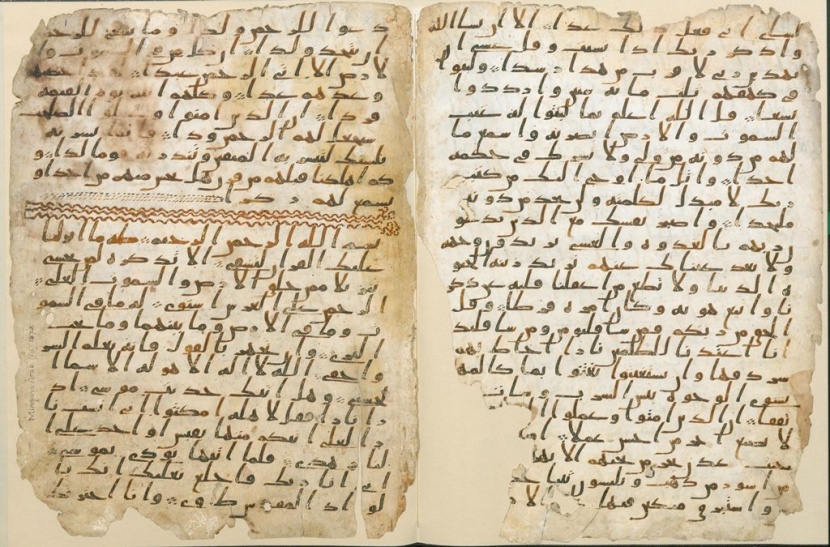 لشاى انى فعل ذلك غدا الا ان يشا الله
واذكر ربك اذا نسيت وقل عسى ا
يهدين ربى لاقرب من هذا رشدا ولبثوا
فى كهفهم ثلث مائه سنين وازدادوا
تسعا قل الله اعلم بما لبثوا له غيب
السموت والارض ابصر به واسمع ما
لهم من دونه من ولى ولا يشرك فى حكمه
احدا واتل ما اوحى اليك من كتب
ربك لا مبدل لكلمته ولن تجد من دونه
ملتحدا واصبر نفسك مع الذين يدعو
ن ربهم بالغدوه والعشى يريدون وجهه
ولا تعد عيناك عنهم تريد زينه الحيو
ه الدنيا ولا تطع من اغفلنا قلبه عن ذكر
نا واتبع هويه وكان امره فرطا وقل
الحق من ربكم فمن شا فليومن ومن شا فليكفر
انا اعتدنا للظلمين نارا احاط بهم
سردقها وان يستغيثوا يغثوا بما كالمهل
يشوى الوجوه بئس الشرب وسات
تفقا ان الذين امنوا وعملوا ا
لا نضيع اجر من احسن عملا او
جنت عدن تجرى من تحتهم الانها
من اسور من ذهب ويلبسون ثيابا خ
واستبرق متكين فيها الا
دعوا للرحمن ولدا وما ينبغى للرحمن
ان يتخذ ولدا ان كل من فى السموت وا
لارض الا اتى الرحمن عبدا لقد احصهم
وعدهم عدا وكلهم اتيه يوم القيمه
فردا ان الذين امنوا وعملوا الصلحت
سيجعل لهم الرحمن ودا فانما يسرنه
بلسنك لتبشر به المتقين وتنذر به قوما لدا و
كم اهلكنا قبلهم من قرن هل تحس منهم من احد او
تسمع لهم ركزا
بسم الله الرحمن الرحيم طه ما انزلنا
عليك القران لتشقى الا تذكره لمن يخشى
تنزيلا ممن خلق الارض والسموت العلى
الرحمن على العرش استوى له ما فى السمو
ت وما فى الارض وما بينهما وما تحت
الثرى وان تجهر بالقول فانه يعلم السر
واخفى الله لا اله الا هو له الاسما ا
لحسنى وهل اتيك حديث موسى اذ
را نارا فقل لاهله امكثوا انى انست نا
را لعلى اتيكم منها بقبس او اجد على ا
لنار هدى فلما اتيها نودى يموسى
انى انا ربك فاخلع نعليك انك با
لواد المقدس طوى وانا اخترتك